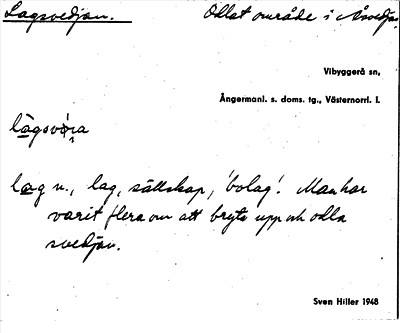 Lagsvedjan. Odlat område i Åsvedjan.
Vibyggerå sn,
Ångermanl. s. doms. tg., Västernorrl. l.
làgsvǿra
lag n., lag, sällskap, 'bolag'. Man har
varit flera om att bryta upp och odla
svedjan.
Sven Hiller 1948